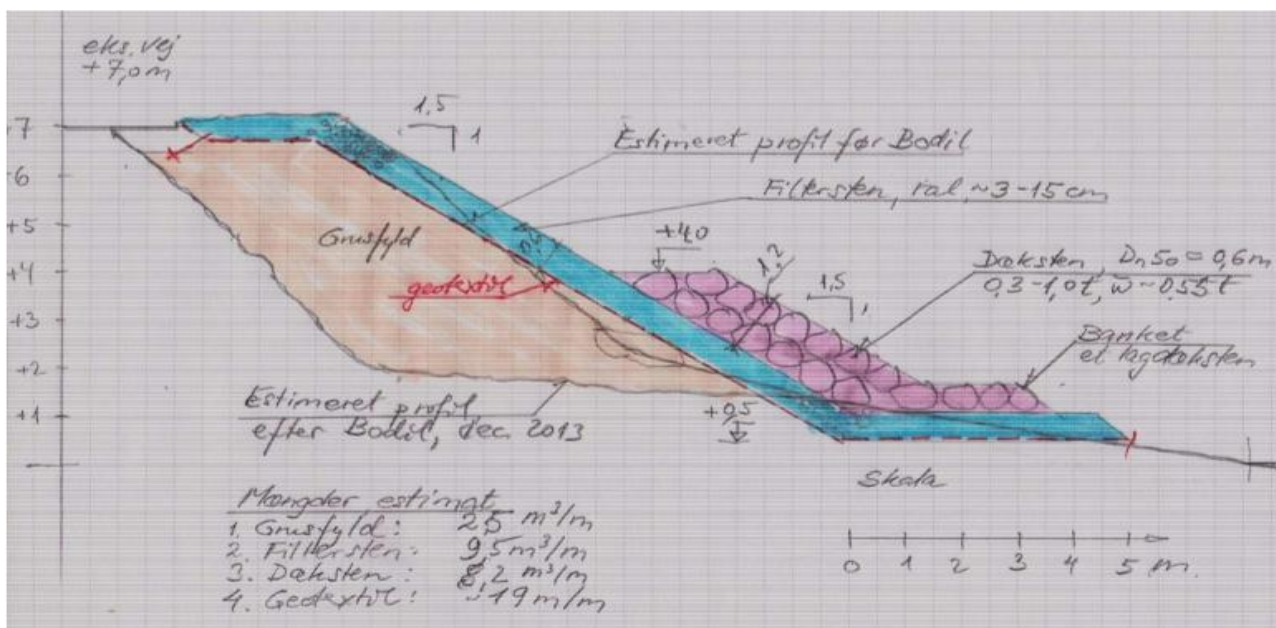 eks. vej
+7,0 m
1,5
1
Estimeret profil før Bodil
Filtersten, ral, ~3-15 cm
+7
+6
+5
+4
+3
+2
+1
Grusfyld
geotextil
+4,0
1,2
1,5
Dæksten, Dn50 = 0,6 m
0,3-1,0t, w ~0,55t
Banket
et lag dæksten
Estimeret profil
efter Bodil, dec. 2013
+0,5
Skala
0 1 2 3 4 5 m.
Mængder estimat
1. Grusfyld: 25 m³/m
2. Filtersten: 9,5 m³/m
3. Dæksten: 8,2 m³/m
4. Geotextil: 19 m/m